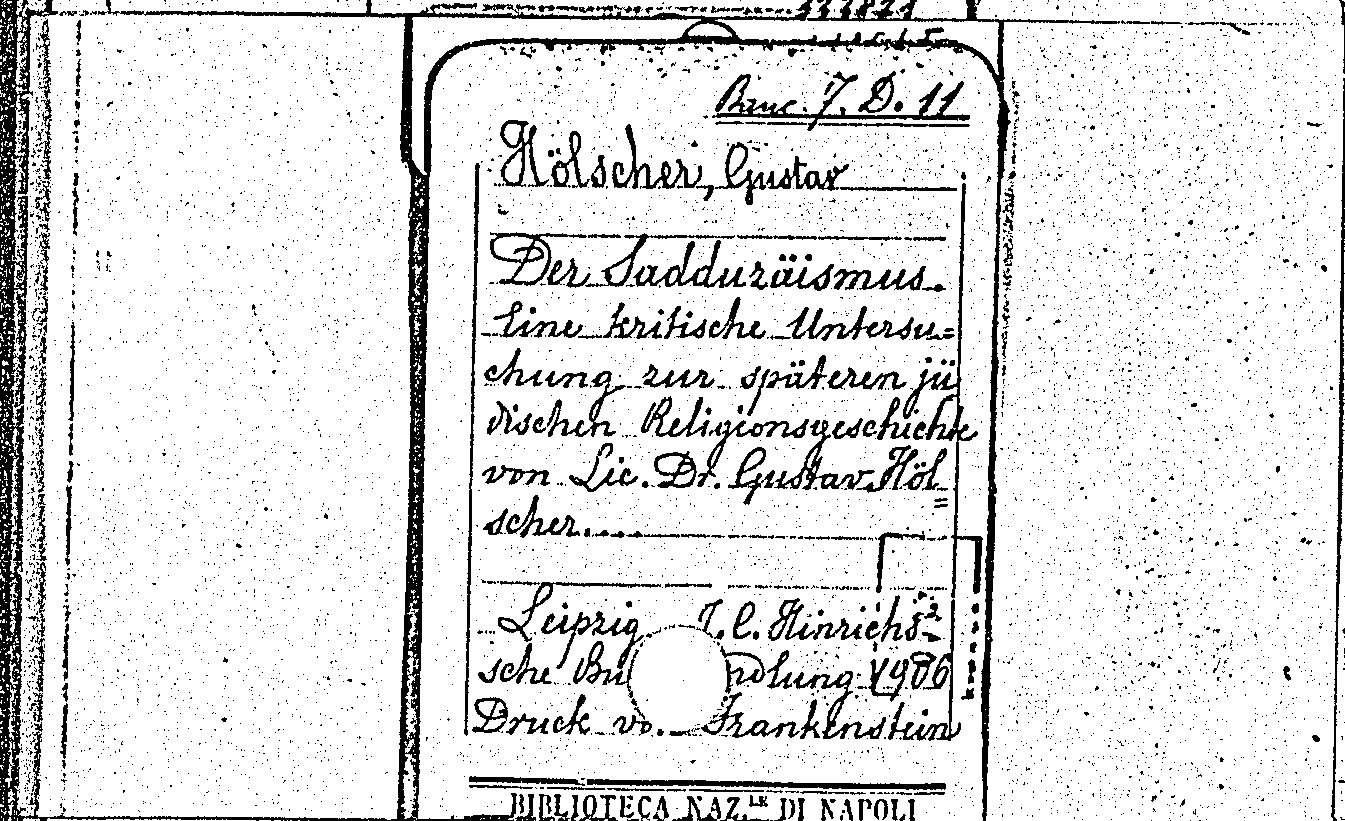 Banc. 7. D. 11
Hölscher, Gustav
Der Sadduzäismus.
Eine kritische Untersu=
chung zur späteren jü
dischen Religionsgeschichte
von Lic. Dr. Gustav Höl
=
scher....
Leipzig J. C. Hinrichs'
sche Bu ndlung 1906
Druck vo. Frankenstein
BIBLIOTECA NAZ.LE DI NAPOLI